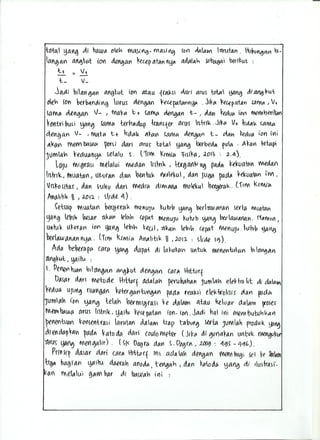 total yang di bawa oleh masing-masing ion dalam larutan. Hubungan bi-
langan angkut ion dengan kecepatannya adalah sebagai berikut :
t+ = V+
t- V-
Jadi bilangan angkut ion atau fraksi dari arus total yang diangkut
oleh ion berbanding lurus dengan kecepatannya. Jika kecepatan sama, V+
sama dengan V-, maka t+ sama dengan t-, dan kedua ion memberikan
kontribusi yang sama terhadap transfer arus listrik. Jika V+ tidak sama
dengan V-, maka t+ tidak akan sama dengan t- dan kedua ion ini
akan membawa porsi dari arus total yang berbeda pula. Akan tetapi
jumlah keduanya selalu 1. (Tim Kimia Fisika, 2013 : 2.4).
Laju migrasi melalui medan listrik, tergantung pada kekuatan medan
listrik, muatan, ukuran dan bentuk molekul, dan juga pada kekuatan ion,
viskositas, dan suhu dari media dimana molekul bergerak. (Tim Kimia
Analitik II, 2012 : slide 4).
Setiap muatan bergerak menuju kutub yang berlawanan serta muatan
yang lebih besar akan lebih cepat menuju kutub yang berlawanan. Namun,
untuk ukuran ion yang lebih kecil, akan lebih cepat menuju kutub yang
berlawanannya. (Tim Kimia Analitik II, 2012 : slide 19).
Ada beberapa cara yang dapat di lakukan untuk menentukan bilangan
angkut, yaitu :
1. Penentuan bilangan angkut dengan cara Hittorf
Dasar dari metode Hittorf adalah perubahan jumlah elektrolit di dalam
kedua ujung ruangan bergantungan pada reaksi elektrolisis dan pada
jumlah ion yang telah bermigrasi ke dalam atau keluar dalam proses
membawa arus listrik, yaitu kecepatan ion-ion. Jadi hal ini membutuhkan
penentuan konsentrasi larutan dalam tiap tabung serta jumlah produk yang
diendapkan pada katoda dari coulometer (Jika digunakan untuk mengukur
arus yang mengalir). (SK Dogra dan S. Dogra, 2009 : 495 - 496).
Prinsip dasar dari cara Hittorf ini adalah dengan membagi sel ke dalam
tiga bagian yaitu daerah anoda, tengah, dan katoda yang di ilustrasi-
kan melalui gambar di bawah ini :